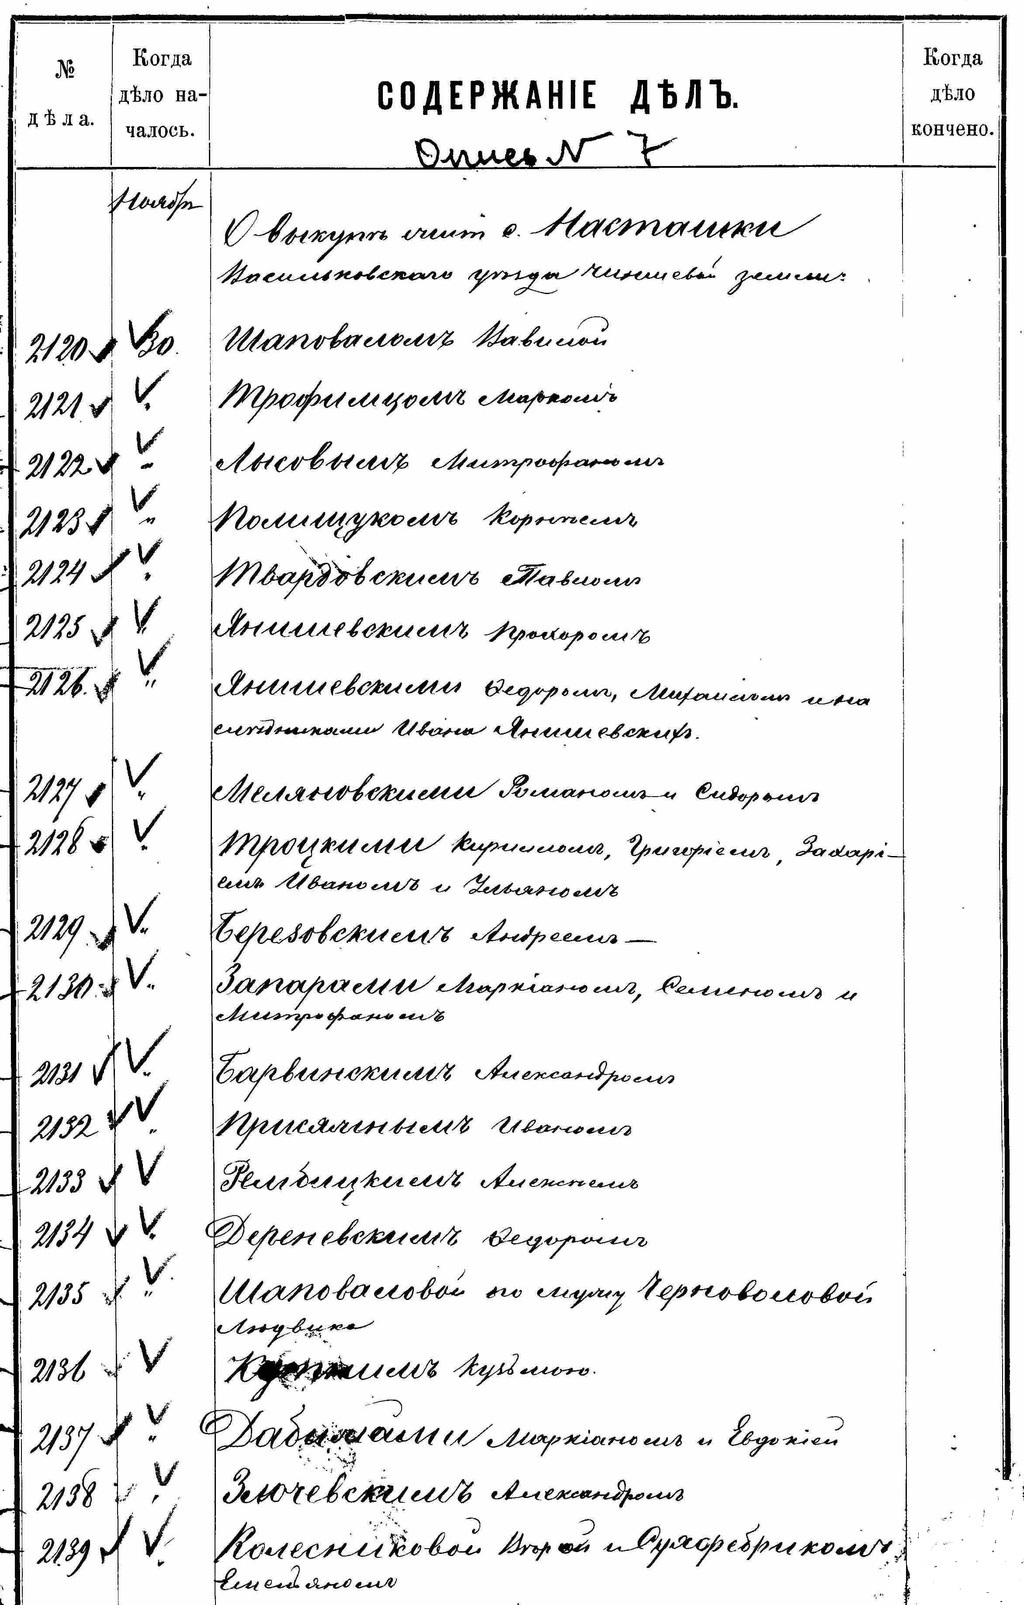 № дѣла.
Когда дѣло началось.
СОДЕРЖАНІЕ ДѢЛЪ.
Когда дѣло кончено.
Опись N 7
Ноябрь
О выкупѣ с. Насташки
Васильковскаго уѣзда чиншевой земли:
2120 30. Шаповаломъ Вавилой
2121 " Трофимцомъ Маркомъ
2122 " Лысовымъ Митрофаномъ
2123 " Полищукомъ Корнѣемъ
2124 " Твардовскимъ Павломъ
2125 " Янишевскимъ Прохоромъ
2126. " Янишевскими Федоромъ, Михаиломъ и на
слѣдниками Ивана Янишевскихъ.
2127 " Меляновскими Романомъ и Сидоромъ
2128 " Троцкими Кириломъ, Григоріемъ, Захарі-
емъ Иваномъ и Ульяномъ
2129 " Березовскимъ Андреемъ —
2130 " Запарами Маркіаномъ, Семеномъ и
Митрофаномъ
2131 " Барвинскимъ Александромъ
2132 " Присяжнымъ Иваномъ
2133 Рембицкимъ Алексѣемъ
2134 " Дереневскимъ Федоромъ
2135 " Шаповаловой по мужу Черноволовой
Людвика
2136 Кузьмою.
2137 " Маркіаномъ и Евдокіей
2138 " Злочевскимъ Александромъ
2139 " Колесниковой и
Емельяномъ